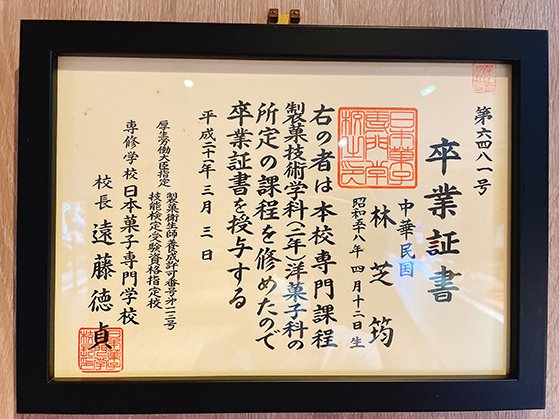 第六四八一号
卒業証書
中華民国
林芝筠
昭和五十八年四月十二日生
右の者は本校専門課程
製菓技術学科(二年)洋菓子科の
所定の課程を修めたので
卒業証書を授与する
平成二十一年三月三日
厚生労働大臣指定
製菓衛生師養成許可番号才一三号
技能検定受験資格指定校
専修学校日本菓子専門学校
校長遠藤徳貞